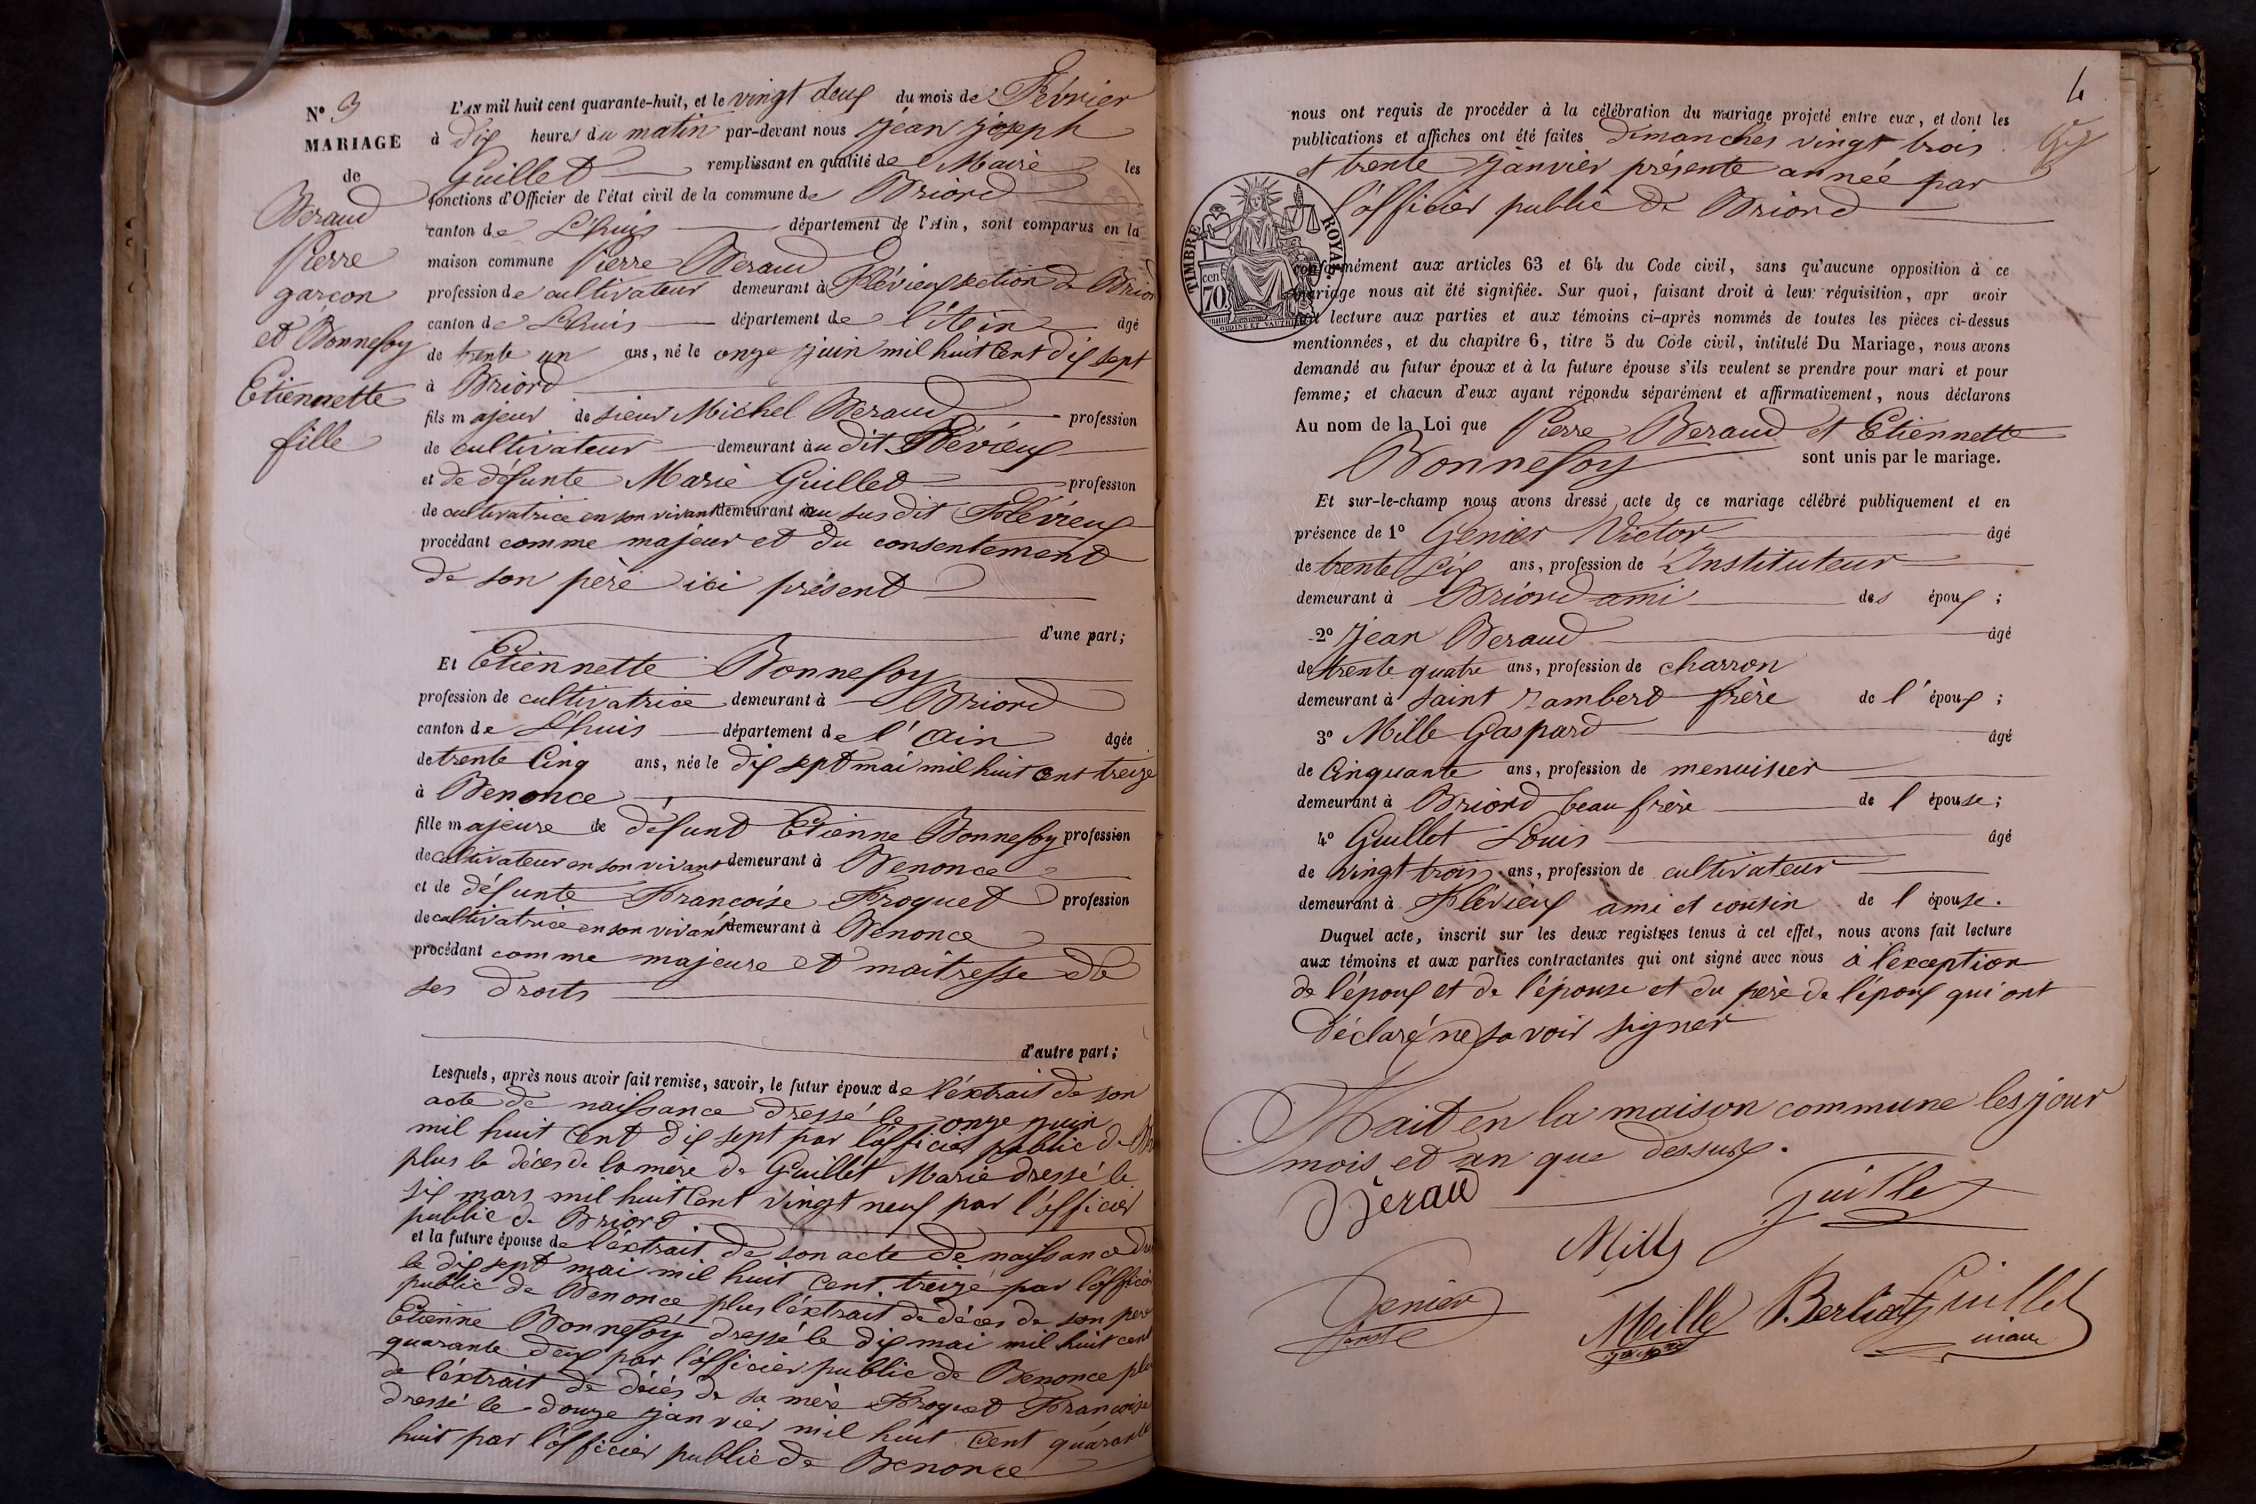 N° 3
MARIAGE
de
Beraud
Pierre
garçon
et Bonnefoy
Etiennette
fille
L'AN mil huit cent quarante-huit, et le vingt deux du mois de Février
à dix heures du matin par-devant nous Jean Joseph
Guillet remplissant en qualité de Maire les
fonctions d'Officier de l'état civil de la commune de Briord
canton de L'huis département de l'Ain, sont comparus en la
maison commune Pierre Beraud
profession de cultivateur demeurant à Flévieux section de Briord
canton de L'huis département de l'Ain âgé
de trente un ans, né le onze juin mil huit cent dix sept
à Briord
fils majeur de sieur Michel Beraud profession
de cultivateur demeurant au dit Flévieux
et de défunte Marie Guillet profession
de cultivatrice en son vivant demeurant au susdit Flévieux
procédant comme majeur et du consentement
de son père ici présent
d'une part;
Et Etiennette Bonnefoy
profession de cultivatrice demeurant à Briord
canton de L'huis département de l'Ain âgée
de trente cinq ans, née le dix sept mai mil huit cent treize
à Benonce
fille majeure de défunt Etienne Bonnefoy profession
de cultivateur en son vivant demeurant à Benonce
et de défunte Francoise Froquet profession
de cultivatrice en son vivant demeurant à Benonce
procédant comme majeure et maitresse de
ses droits
d'autre part;
Lesquels, après nous avoir fait remise, savoir, le futur époux de l'éxtrait de son
acte de naissance dressé le onze juin
mil huit cent dix sept par l'officier public de
plus le déces de la mère de Guillet Marie dressé le
six mars mil huit cent vingt neuf par l'officier
public de Briord
et la future épouse de l'éxtrait de son acte de naissance du
le dix sept mai mil huit cent treize par l'officier
public de Benonce plus l'éxtrait de déces de son père
Etienne Bonnefoy dressé le dix mai mil huit cent
quarante deux par l'officier public de Benonce plus
de l'éxtrait de déces de sa mère Froquet Francoise
dressé le douze janvier mil huit cent quarante
huit par l'officier public de Benonce
4
nous ont requis de procéder à la célébration du mariage projeté entre eux, et dont les
publications et affiches ont été faites Dimanches vingt trois
et trente Janvier présente année par
l'officier public de Briord
TIMBRE ROYAL
70 cen
conformément aux articles 63 et 64 du Code civil, sans qu'aucune opposition à ce
mariage nous ait été signifiée. Sur quoi, faisant droit à leur réquisition, apr avoir
fait lecture aux parties et aux témoins ci-après nommés de toutes les pièces ci-dessus
mentionnées, et du chapitre 6, titre 5 du Code civil, intitulé Du Mariage, nous avons
demandé au futur époux et à la future épouse s'ils veulent se prendre pour mari et pour
femme; et chacun d'eux ayant répondu séparément et affirmativement, nous déclarons
Au nom de la Loi que Pierre Beraud et Etiennette
Bonnefoy sont unis par le mariage.
Et sur-le-champ nous avons dressé acte de ce mariage célébré publiquement et en
présence de 1° Genier Victor âgé
de trente six ans, profession de Instituteur
demeurant à Briord ami des époux ;
2° Jean Beraud âgé
de trente quatre ans, profession de charron
demeurant à saint rambert frère de l'époux ;
3° Mille Gaspard âgé
de cinquante ans, profession de menuisier
demeurant à Briord beau frère de l'épouse;
4° Guillet Louis âgé
de vingt trois ans, profession de cultivateur
demeurant à Flévieux ami et cousin de l'épouse.
Duquel acte, inscrit sur les deux registres tenus à cet effet, nous avons fait lecture
aux témoins et aux parties contractantes qui ont signé avec nous à l'exception
de l'époux et de l'épouse et du père de l'époux qui ont
déclaré ne savoir signer
Fait en la maison commune les jour
mois et an que dessus.
Beraud
Guillet
Mille
Genier
Mille
Berliat
Guillet
maire